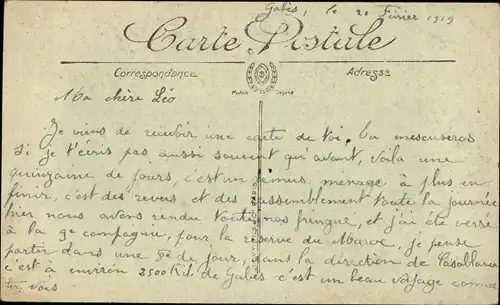 Gabès, le 2 Février 1919
Carte Postale
Correspondance
Adresse
Modèle Déposé
Ma chère Léo
Je viens de recevoir une carte de toi. Tu m'escuseras
si je t'écris pas aussi souvent qu'avant, voila une
quinzaine de jours, c'est un remus, ménage à plus en
finir, c'est des revus et des rassemblement toute la journée
hier nous avons rendu toute nos fringue, et j'ai été versé
à la 9e compagnie, pour la réserve du Maroc, je pense
partir dans une de jour, dans la direction de Casablanca
c'est à environ 2500 Kil. de Gabès c'est un beau voyage comme
tu vois